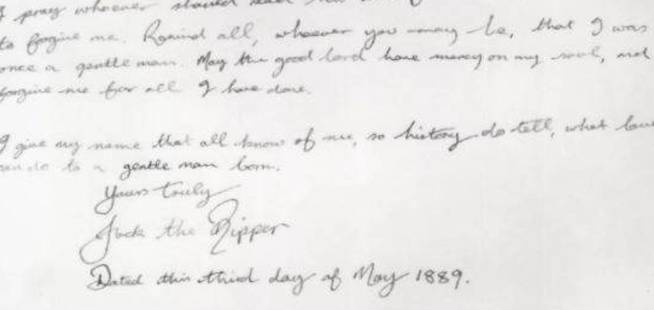 I pray whoever should read this
to forgive me. Remind all, whoever you may be, that I was
once a gentle man. May the good lord have mercy on my soul, and
forgive me for all I have done.
I give my name that all know of me, so history do tell, what love
can do to a gentle man born.
Yours truly
Jack the Ripper
Dated this third day of May 1889.